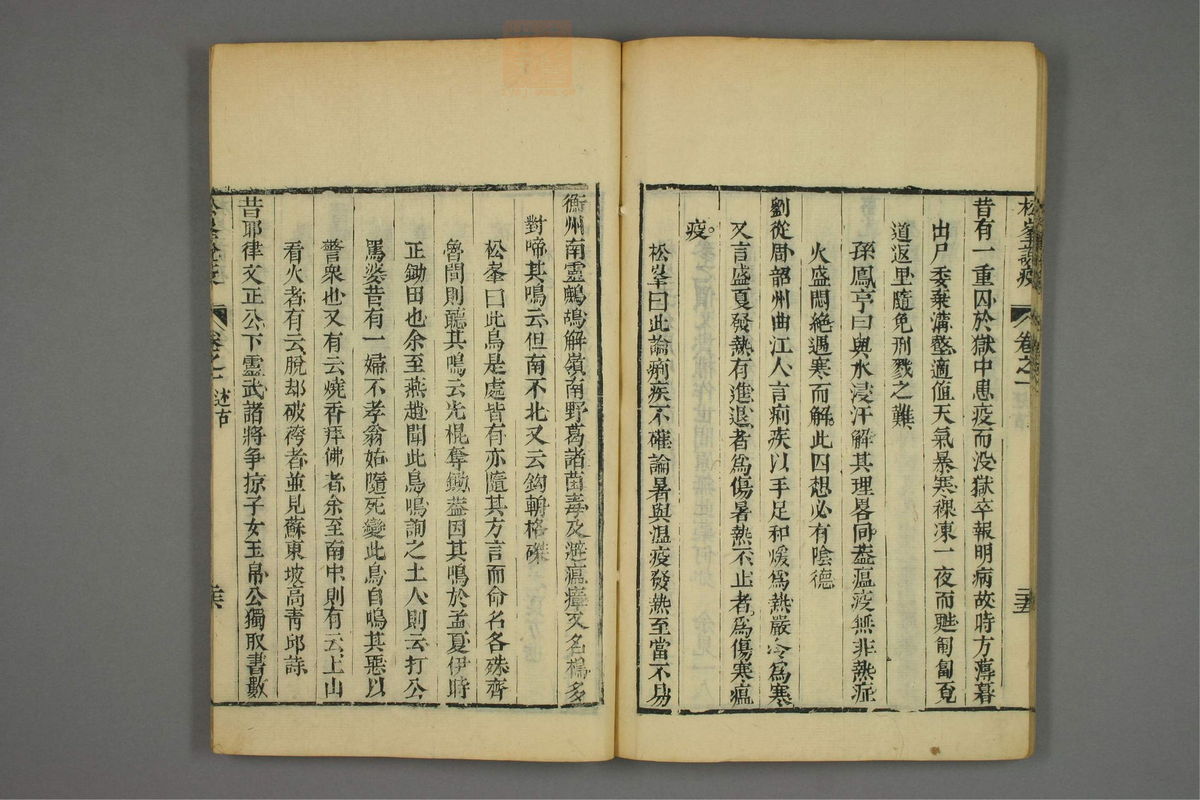 松峯說疫 卷之一 述古 二十五
昔有一重囚於獄中患疫而没獄卒報明病故時方薄暮
出尸委棄溝壑適值天氣暴寒裸凍一夜而甦匍匐覓
道返里隨免刑戮之難
孫鳳亭曰與水浸汗解其理畧同葢瘟疫無非熱症
火盛悶絶遇寒而解此囚想必有陰德
劉從周韶州曲江人言痢疾以手足和煖爲熱嚴冷爲寒
又言盛夏發熱有進退者爲傷暑熱不止者爲傷寒瘟
疫
松峯曰此論痢疾不確論暑與溫疫發熱至當不易
衡州南靈鷓鴣解嶺南野葛諸菌毒及避瘟瘴又名楊多
對啼其鳴云但南不北又云鈎輈格磔
松峯曰此鳥是處皆有亦隨其方言而命名各殊齊
魯間則聽其鳴云光棍奪鋤葢因其鳴於孟夏伊時
正鋤田也余至燕趙聞此鳥鳴詢之土人則云打公
罵婆昔有一婦不孝翁姑隨死變此鳥自鳴其惡以
警衆也又有云燒香拜佛者余至南中則有云上山
看火者有云脫却破袴者並見蘇東坡高靑邱詩
昔耶律文正公下靈武諸將争掠子女玉帛公獨取書數
松峯說疫 卷之一 述古 二十六